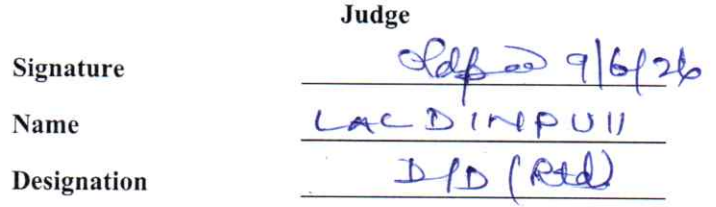 Judge
Signature 9/6/26
Name LALDINPUII
Designation D/D (Rtd)